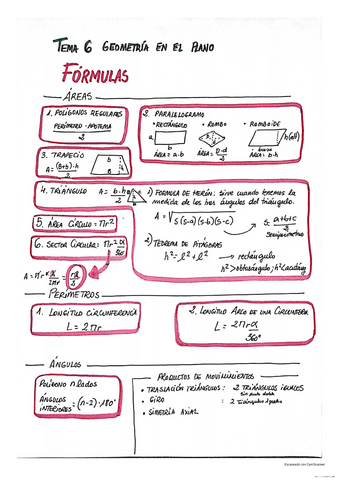 TEMA 6 GEOMETRÍA EN EL PLANO
FÓRMULAS
ÁREAS
1. POLÍGONOS REGULARES
PERÍMETRO · APOTEMA
2
2. PARALELOGRAMO
• RECTÁNGULO • ROMBO • ROMBOIDE
a
b
h (alt)
base
ÁREA = a·b ÁREA = D·d/2 ÁREA = b·h
3. TRAPECIO
A = (B+b)·h/2
b
h
B
4. TRIÁNGULO A = b·h/2
1) FORMULA DE HERÓN: sirve cuando tenemos la
medida de los hos ángulos del triángulo.
A = √s(s-a)(s-b)(s-c)
s = a+b+c/2
Semiperímetro
2) TEOREMA DE PITÁGORAS
h² = l² + l² → rectángulo
h² > obtusángulo; h² < acután
5. ÁREA CÍRCULO = πr²
6. SECTOR CIRCULAR = πr² α/360°
PERÍMETROS
1. LONGITUD CIRCUNFERENCIA
L = 2πr
2. LONGITUD ARCO DE UNA CIRCUNFER
L = 2πrα/360°
ÁNGULOS
POLÍGONO n LADOS
ÁNGULOS INTERIORES = (n-2)·180°
PRODUCTOS DE MOVIMIENTOS
• TRASLACIÓN TRIÁNGULOS: 2 TRIÁNGULOS IGUALES
• GIRO
: 2 Triángulos iguales
• SIMETRÍA AXIAL
Escaneado con CamScanner